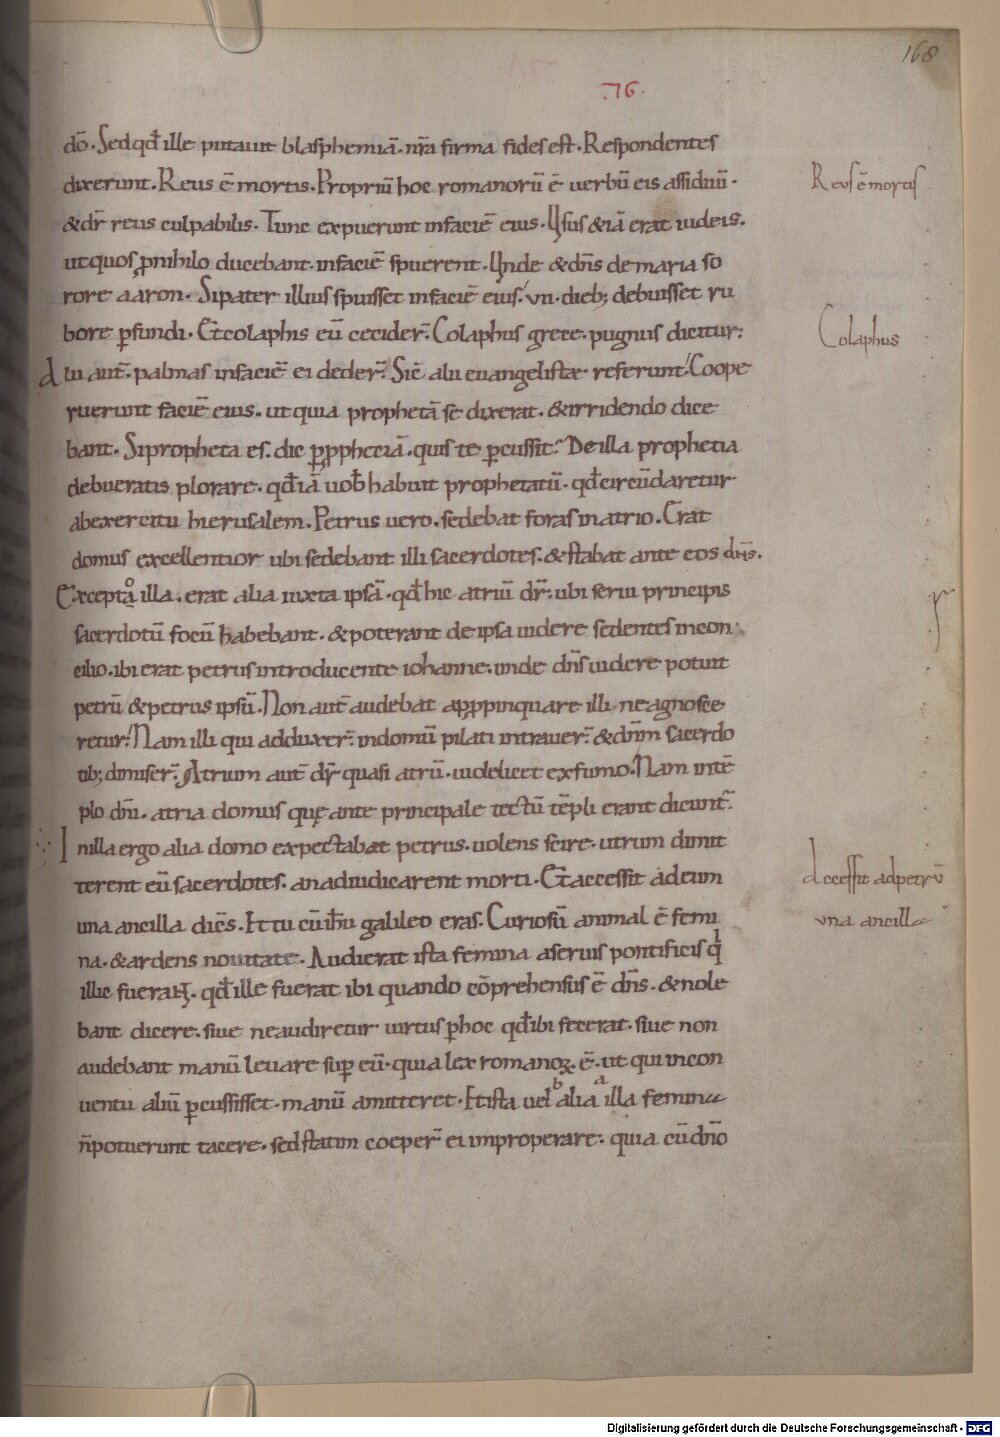 168
76.
dō. Sed qđ ille putauit blasphemiā. nr̄a firma fides est. Respondentes
dixerunt. Reus ē mortis. Propriū hoc romanorū ē uerbū eis assiduū.
& dr̄ reus culpabilis. Tunc expuerunt in faciē eius. Usus & iā erat iudeis.
ut quos ꝓ nihilo ducebant. in faciē spuerent. Unde & dn̄s de maria so
rore aaron. Si pater illius spuisset in faciē eius. vii. dieb; debuisset ru
bore ꝑfundi. Et colaphis eū cecider̄. Colaphus grece. pugnus dicitur.
Alii aut̄. palmas in faciē ei deder̄. Sic̄ alii euangelistae referunt. Coope
ruerunt faciē eius. ut quia prophetā se dixerat. & irridendo dice
bant. Si propheta es. dic ꝑ ꝓphetiā. quis te ꝑcussit. De illa prophetia
debueratis plorare. qđ iā uob̄ habuit prophetatū. qđ circūdaretur
ab exercitu hierusalem. Petrus uero. sedebat foras in atrio. Erat
domus excellentior ubi sedebant illi sacerdotes. & stabat ante eos dn̄s.
Excepta illa. erat alia iuxta ipsā. qđ hic atriū dr̄. ubi serui principis
sacerdotū focū habebant. & poterant de ipsa uidere sedentes in con
cilio. ibi erat petrus introducente iohanne. unde dn̄s uidere potuit
petrū & petrus ipsū. Non aut̄ audebat apꝓpinquare illi. ne agnosce
retur. Nam illi qui adduxer̄. in domū pilati intrauer̄. & dn̄m sacerdo
tib; dimiser̄. Atrium aut̄ dr̄ quasi atrū. uidelicet ex fumo. Nam in tē
plo dn̄i. atria domus quę ante principale tectū tēpli erant dicunt̄.
In illa ergo alia domo expectabat petrus. uolens scire. utrum dimit
terent eū sacerdotes. an adiudicarent morti. Et accessit ad eum
una ancilla dicēs. Et tu cū ihū galileo eras. Curiosū animal ē femi
na. & ardens nouitate. Audierat ista femina a seruis pontificis qui
illic fuerant. qđ ille fuerat ibi quando cōprehensus ē dn̄s. & nole
bant dicere. siue ne audiretur uirtus ꝑ hoc qđ ibi fecerat. siue non
audebant manū leuare suꝑ eū. quia lex romanoꝝ. ē. ut qui in con
uentu aliū ꝑcussisset. manū amitteret. Et ista uel alia illa femina
n̄ potuerunt tacere. sed statim coeper̄ ei improperare. quia cū dn̄o
Reus ē mortis
Colaphus
Accessit ad petrū
vna ancilla
Digitalisierung gefördert durch die Deutsche Forschungsgemeinschaft - DFG